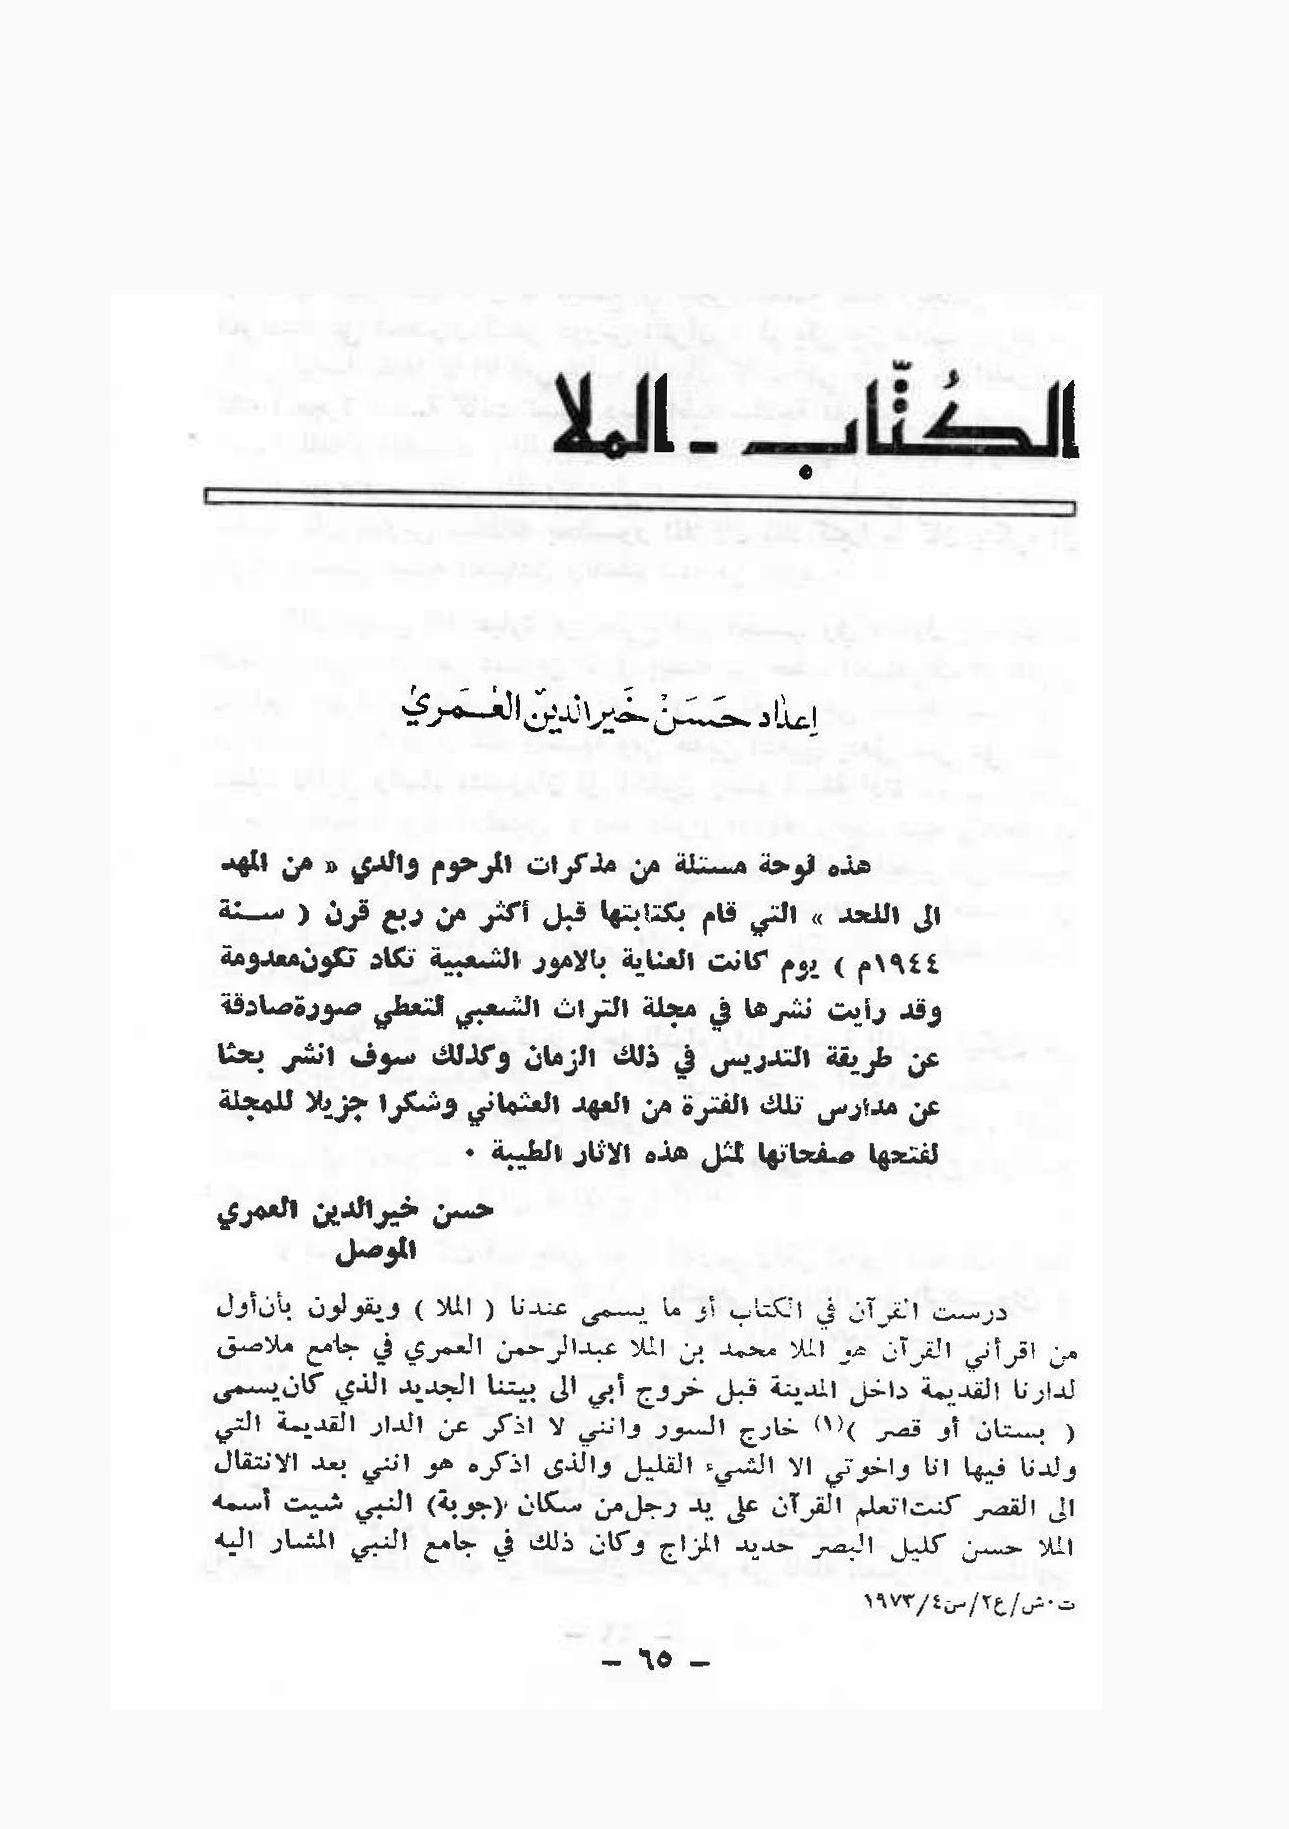 الكُتَّاب - الملا
إعداد حَسَنْ خَيرالدين العُمَري
هذه لوحة مستلة من مذكرات المرحوم والدي « من المهد
الى اللحد » التي قام بكتابتها قبل أكثر من ربع قرن ( سـنة
١٩٤٤م ) يوم كانت العناية بالامور الشعبية تكاد تكون معدومة
وقد رأيت نشرها في مجلة التراث الشعبي لتعطي صورة صادقة
عن طريقة التدريس في ذلك الزمان وكذلك سوف انشر بحثا
عن مدارس تلك الفترة من العهد العثماني وشكرا جزيلا للمجلة
لفتحها صفحاتها لمثل هذه الاثار الطيبة ٠
حسن خيرالدين العمري
الموصل
درست القرآن في الكتاب أو ما يسمى عندنا ( الملا ) ويقولون بأن أول
من اقرأني القرآن هو الملا محمد بن الملا عبدالرحمن العمري في جامع ملاصق
لدارنا القديمة داخل المدينة قبل خروج أبي الى بيتنا الجديد الذي كان يسمى
( بستان أو قصر )(١) خارج السور وانني لا اذكر عن الدار القديمة التي
ولدنا فيها انا واخوتي الا الشيء القليل والذى اذكره هو انني بعد الانتقال
الى القصر كنت اتعلم القرآن على يد رجل من سكان (جوبة) النبي شيت أسمه
الملا حسن كليل البصر حديد المزاج وكان ذلك في جامع النبي المشار اليه
ت٠ش/ع٢/س٤/١٩٧٣
– ٦٥ –